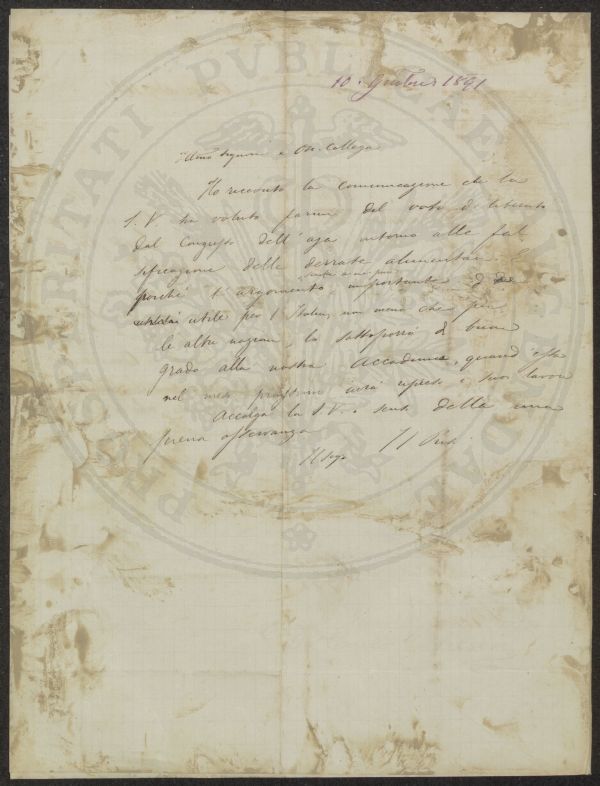 10. 1891
Signore e On. Collega
Ho ricevuto la comunicazione che la
S. V. ha voluto farmi del voto deliberato
dal Congresso dell'aja intorno alle fal-
sificazione delle derrate alimentari.
perchè l'argomento importante e
utile per l'Italia, non meno che per
le altre nazioni, la sottoporrò di buon
grado alla nostra Accademia, quand'essa
nel mese prossimo avrà ripreso i suoi lavori
Accolga la S. V. i sensi della mia
osservanza
Il Seg. Il Pres.
PVBLICAE